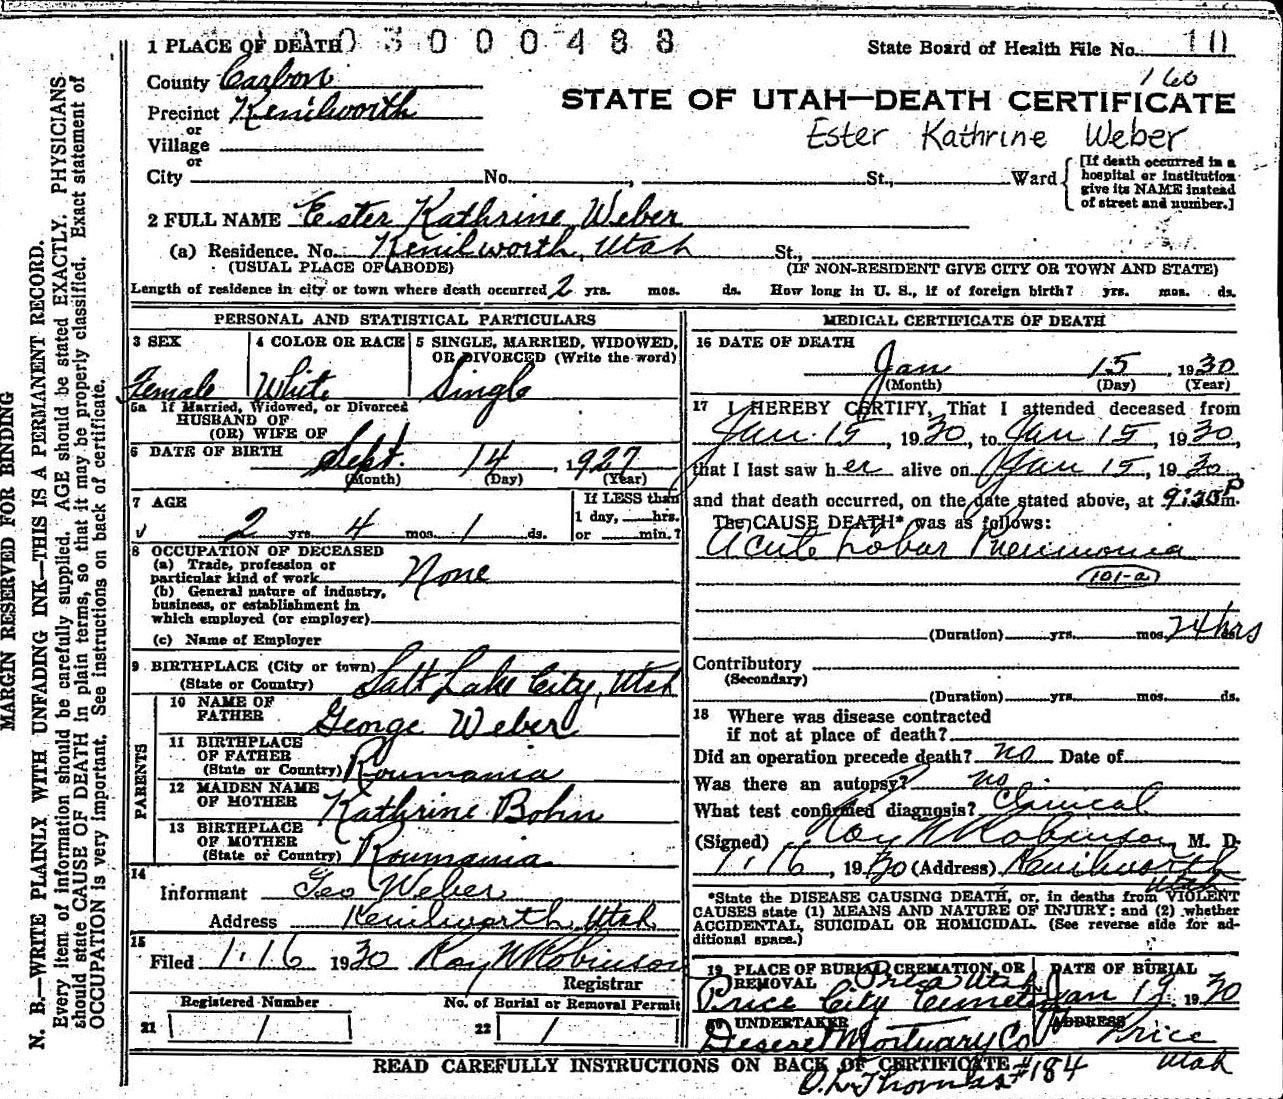 1 PLACE OF DEATH 03000488
State Board of Health File No. 10
160
County Carbon
STATE OF UTAH—DEATH CERTIFICATE
Precinct Kenilworth
Ester Kathrine Weber
or
Village
or
City No. , St., Ward
[If death occurred in a
hospital or institution
give its NAME instead
of street and number.]
2 FULL NAME Ester Kathrine Weber
(a) Residence. No. Kenilworth, Utah St.,
(USUAL PLACE OF ABODE) (IF NON-RESIDENT GIVE CITY OR TOWN AND STATE)
Length of residence in city or town where death occurred 2 yrs. mos. ds. How long in U. S., if of foreign birth? yrs. mos. ds.
PERSONAL AND STATISTICAL PARTICULARS
3 SEX
Female
4 COLOR OR RACE
White
5 SINGLE, MARRIED, WIDOWED,
OR DIVORCED (Write the word)
Single
5a If Married, Widowed, or Divorced
HUSBAND OF
(OR) WIFE OF
6 DATE OF BIRTH Sept. 14, 1927
(Month) (Day) (Year)
7 AGE
2 yrs. 4 mos. 1 ds.
If LESS than
1 day, hrs.
or min.?
8 OCCUPATION OF DECEASED
(a) Trade, profession or
particular kind of work None
(b) General nature of industry,
business, or establishment in
which employed (or employer)
(c) Name of Employer
9 BIRTHPLACE (City or town)
(State or Country) Salt Lake City, Utah
PARENTS
10 NAME OF
FATHER George Weber
11 BIRTHPLACE
OF FATHER
(State or Country) Roumania
12 MAIDEN NAME
OF MOTHER Kathrine Bohn
13 BIRTHPLACE
OF MOTHER
(State or Country) Roumania
14
Informant Geo Weber
Address Kenilworth, Utah
15
Filed 1-16 1930 Roy W Robinson
Registrar
Registered Number No. of Burial or Removal Permit
21 1 22 1
MEDICAL CERTIFICATE OF DEATH
16 DATE OF DEATH
Jan 15, 1930
(Month) (Day) (Year)
17 I HEREBY CERTIFY, That I attended deceased from
Jan. 15, 1930, to Jan 15, 1930,
that I last saw her alive on Jan 15, 1930
and that death occurred, on the date stated above, at 9:30 P m.
The CAUSE DEATH* was as follows:
Acute Lobar Pneumonia
101-a
(Duration) yrs. mos. 24 hrs ds.
Contributory
(Secondary)
(Duration) yrs. mos. ds.
18 Where was disease contracted
if not at place of death?
Did an operation precede death? no Date of
Was there an autopsy? no
What test confirmed diagnosis? Clinical
(Signed) Roy W Robinson, M. D.
1-16, 1930 (Address) Kenilworth
Utah
*State the DISEASE CAUSING DEATH, or, in deaths from VIOLENT
CAUSES state (1) MEANS AND NATURE OF INJURY; and (2) whether
ACCIDENTAL, SUICIDAL OR HOMICIDAL. (See reverse side for ad-
ditional space.)
19 PLACE OF BURIAL, CREMATION, OR
REMOVAL Price Utah
Price City Cemetery
DATE OF BURIAL
Jan 19 1930
20 UNDERTAKER
Deseret Mortuary Co
ADDRESS
Price
Utah
READ CAREFULLY INSTRUCTIONS ON BACK OF CERTIFICATE
#184
MARGIN RESERVED FOR BINDING
N. B.—WRITE PLAINLY WITH UNFADING INK—THIS IS A PERMANENT RECORD.
Every item of information should be carefully supplied. AGE should be stated EXACTLY. PHYSICIANS
should state CAUSE OF DEATH in plain terms, so that it may be properly classified. Exact statement of
OCCUPATION is very important. See instructions on back of certificate.